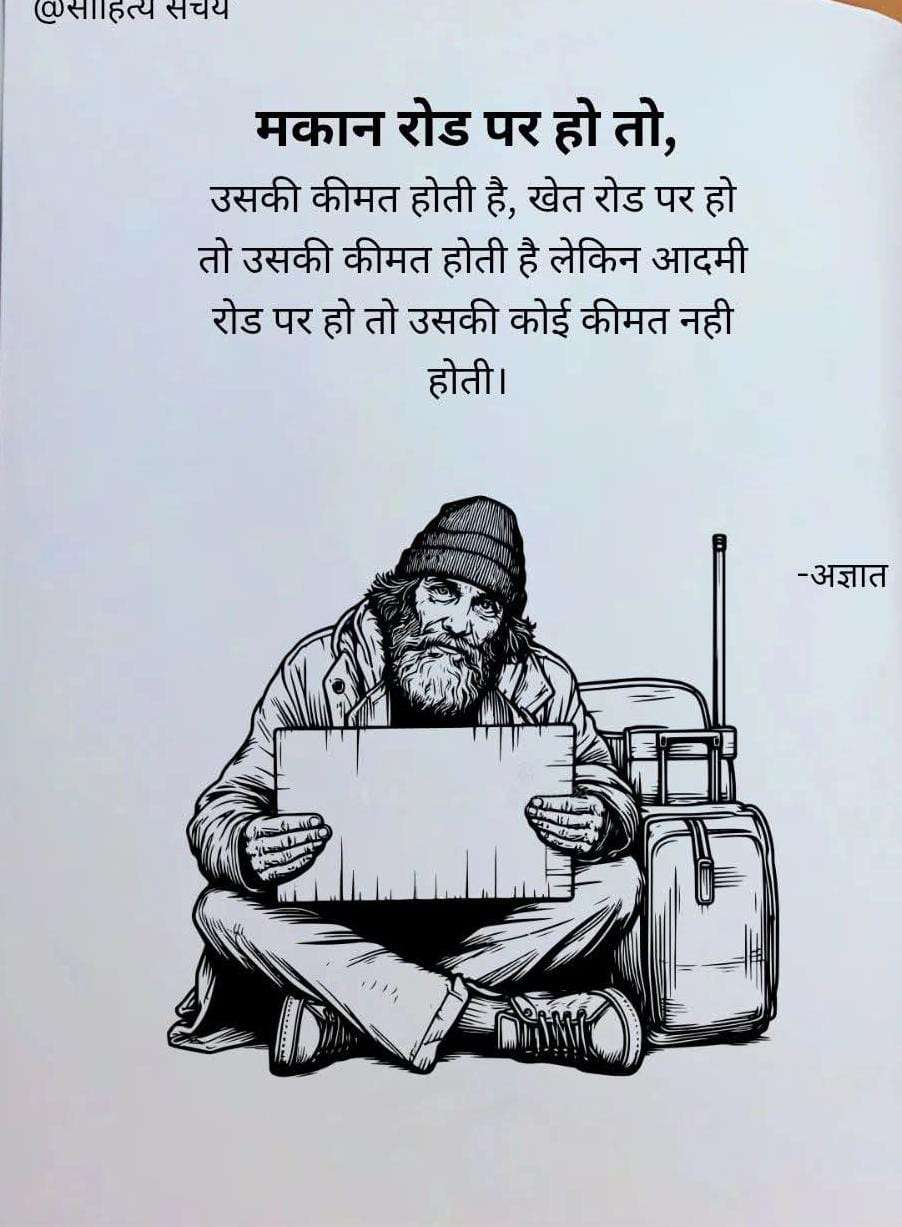 @साहित्य संचय
मकान रोड पर हो तो,
उसकी कीमत होती है, खेत रोड पर हो
तो उसकी कीमत होती है लेकिन आदमी
रोड पर हो तो उसकी कोई कीमत नही
होती।
-अज्ञात